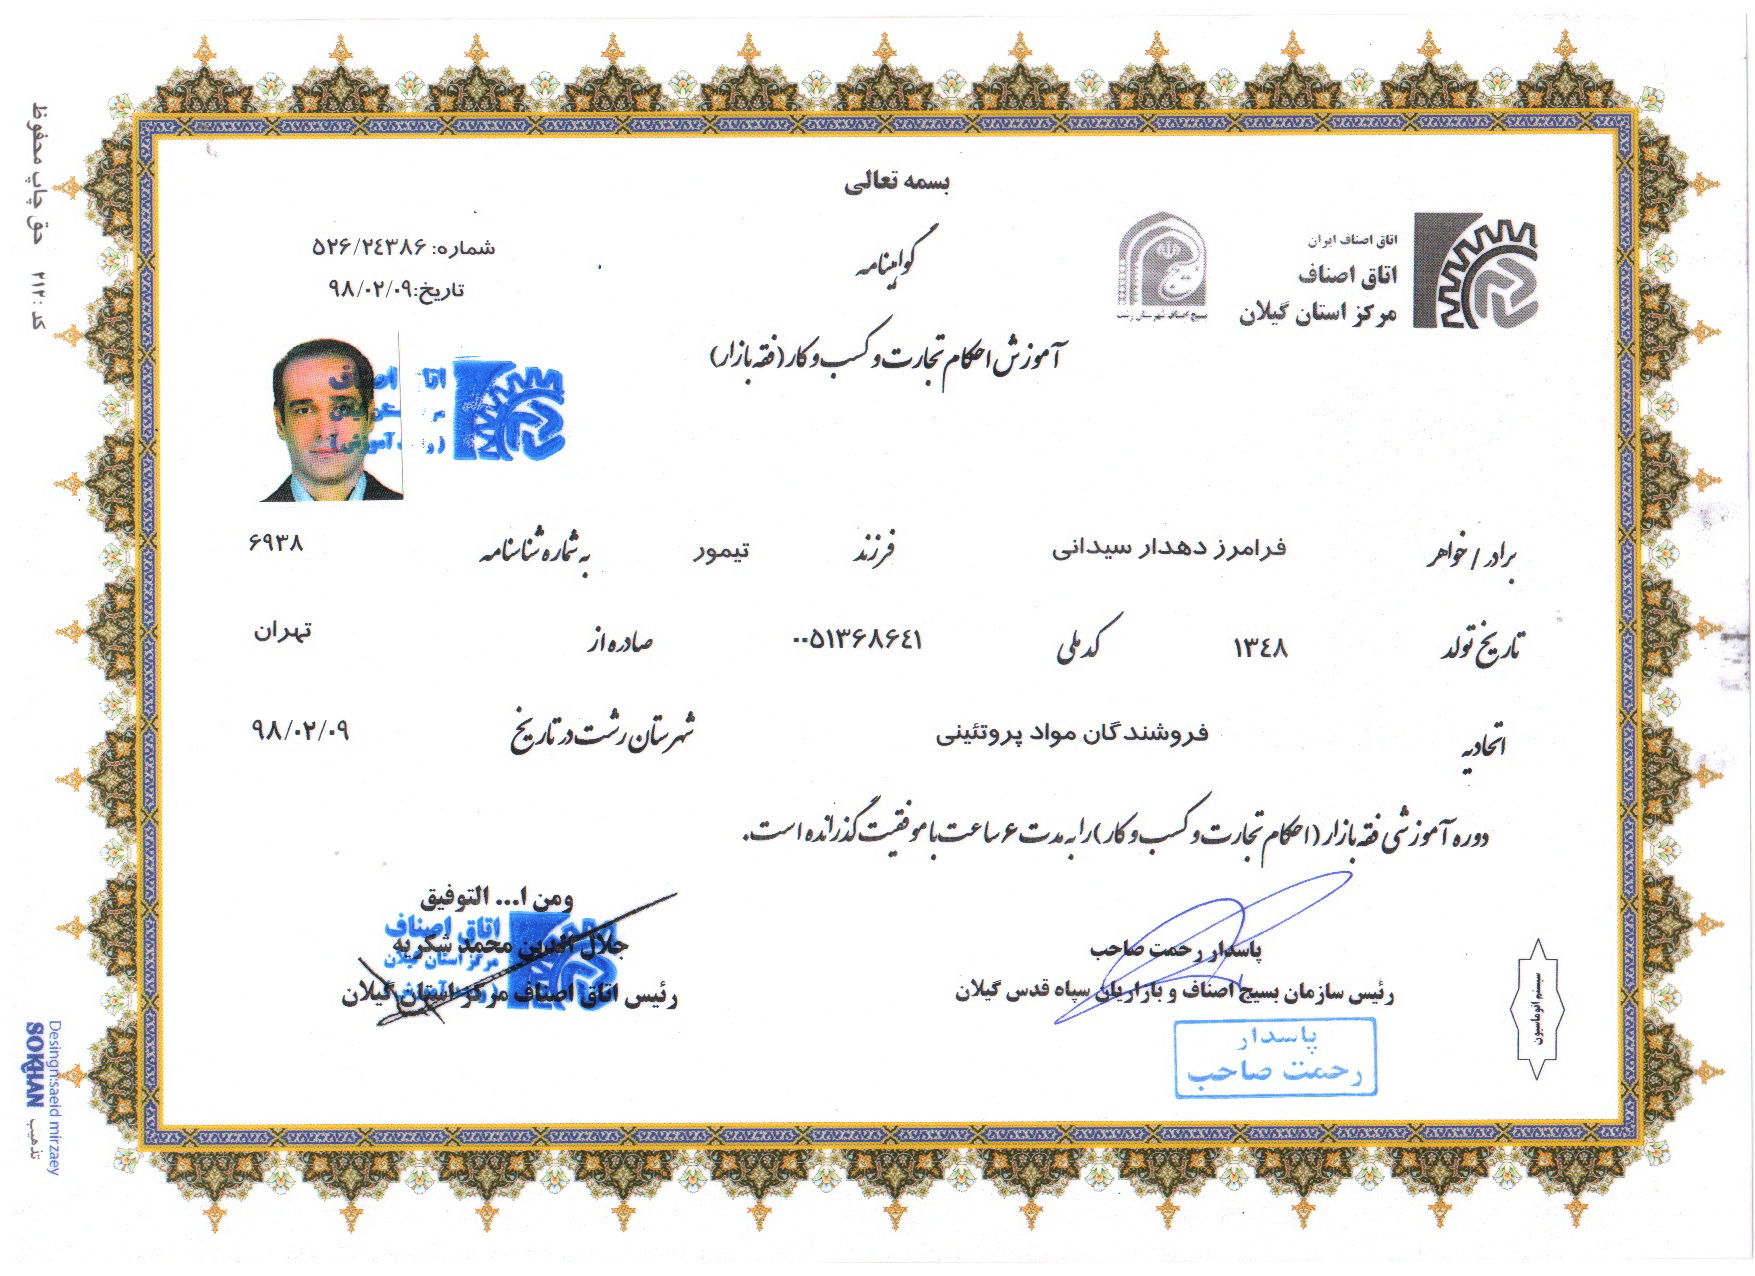 بسمه تعالی
اتاق اصناف ایران
اتاق اصناف
مرکز استان گیلان
بسیج اصناف شهرستان رشت
گواهینامه
شماره: ۵۲۶/۲۴۳۸۶
تاریخ:۹۸/۰۲/۰۹
آموزش احکام تجارت و کسب و کار (فقه بازار)
اتاق اصناف
برادر / خواهر فرامرز دهدار سیدانی فرزند تیمور به شماره شناسنامه ۶۹۳۸
تاریخ تولد ۱۳۴۸ کد ملی ۰۰۵۱۳۶۸۶۴۱ صادره از تهران
اتحادیه فروشندگان مواد پروتئینی شهرستان رشت در تاریخ ۹۸/۰۲/۰۹
دوره آموزشی فقه بازار (احکام تجارت و کسب و کار) را به مدت ۶ ساعت با موفقیت گذرانده است.
ومن ا... التوفیق
پاسدار رحمت صاحب
رئیس سازمان بسیج اصناف و بازاریان سپاه قدس گیلان
پاسدار
رحمت صاحب
جلال الدین محمد شکریه
رئیس اتاق اصناف مرکز استان گیلان
اتاق اصناف
مرکز استان گیلان
سیستم اتوماسیون
کد: ۲۱۲ حق چاپ محفوظ
Desingn:saeid mirzaey
SOKHAN تذهیب